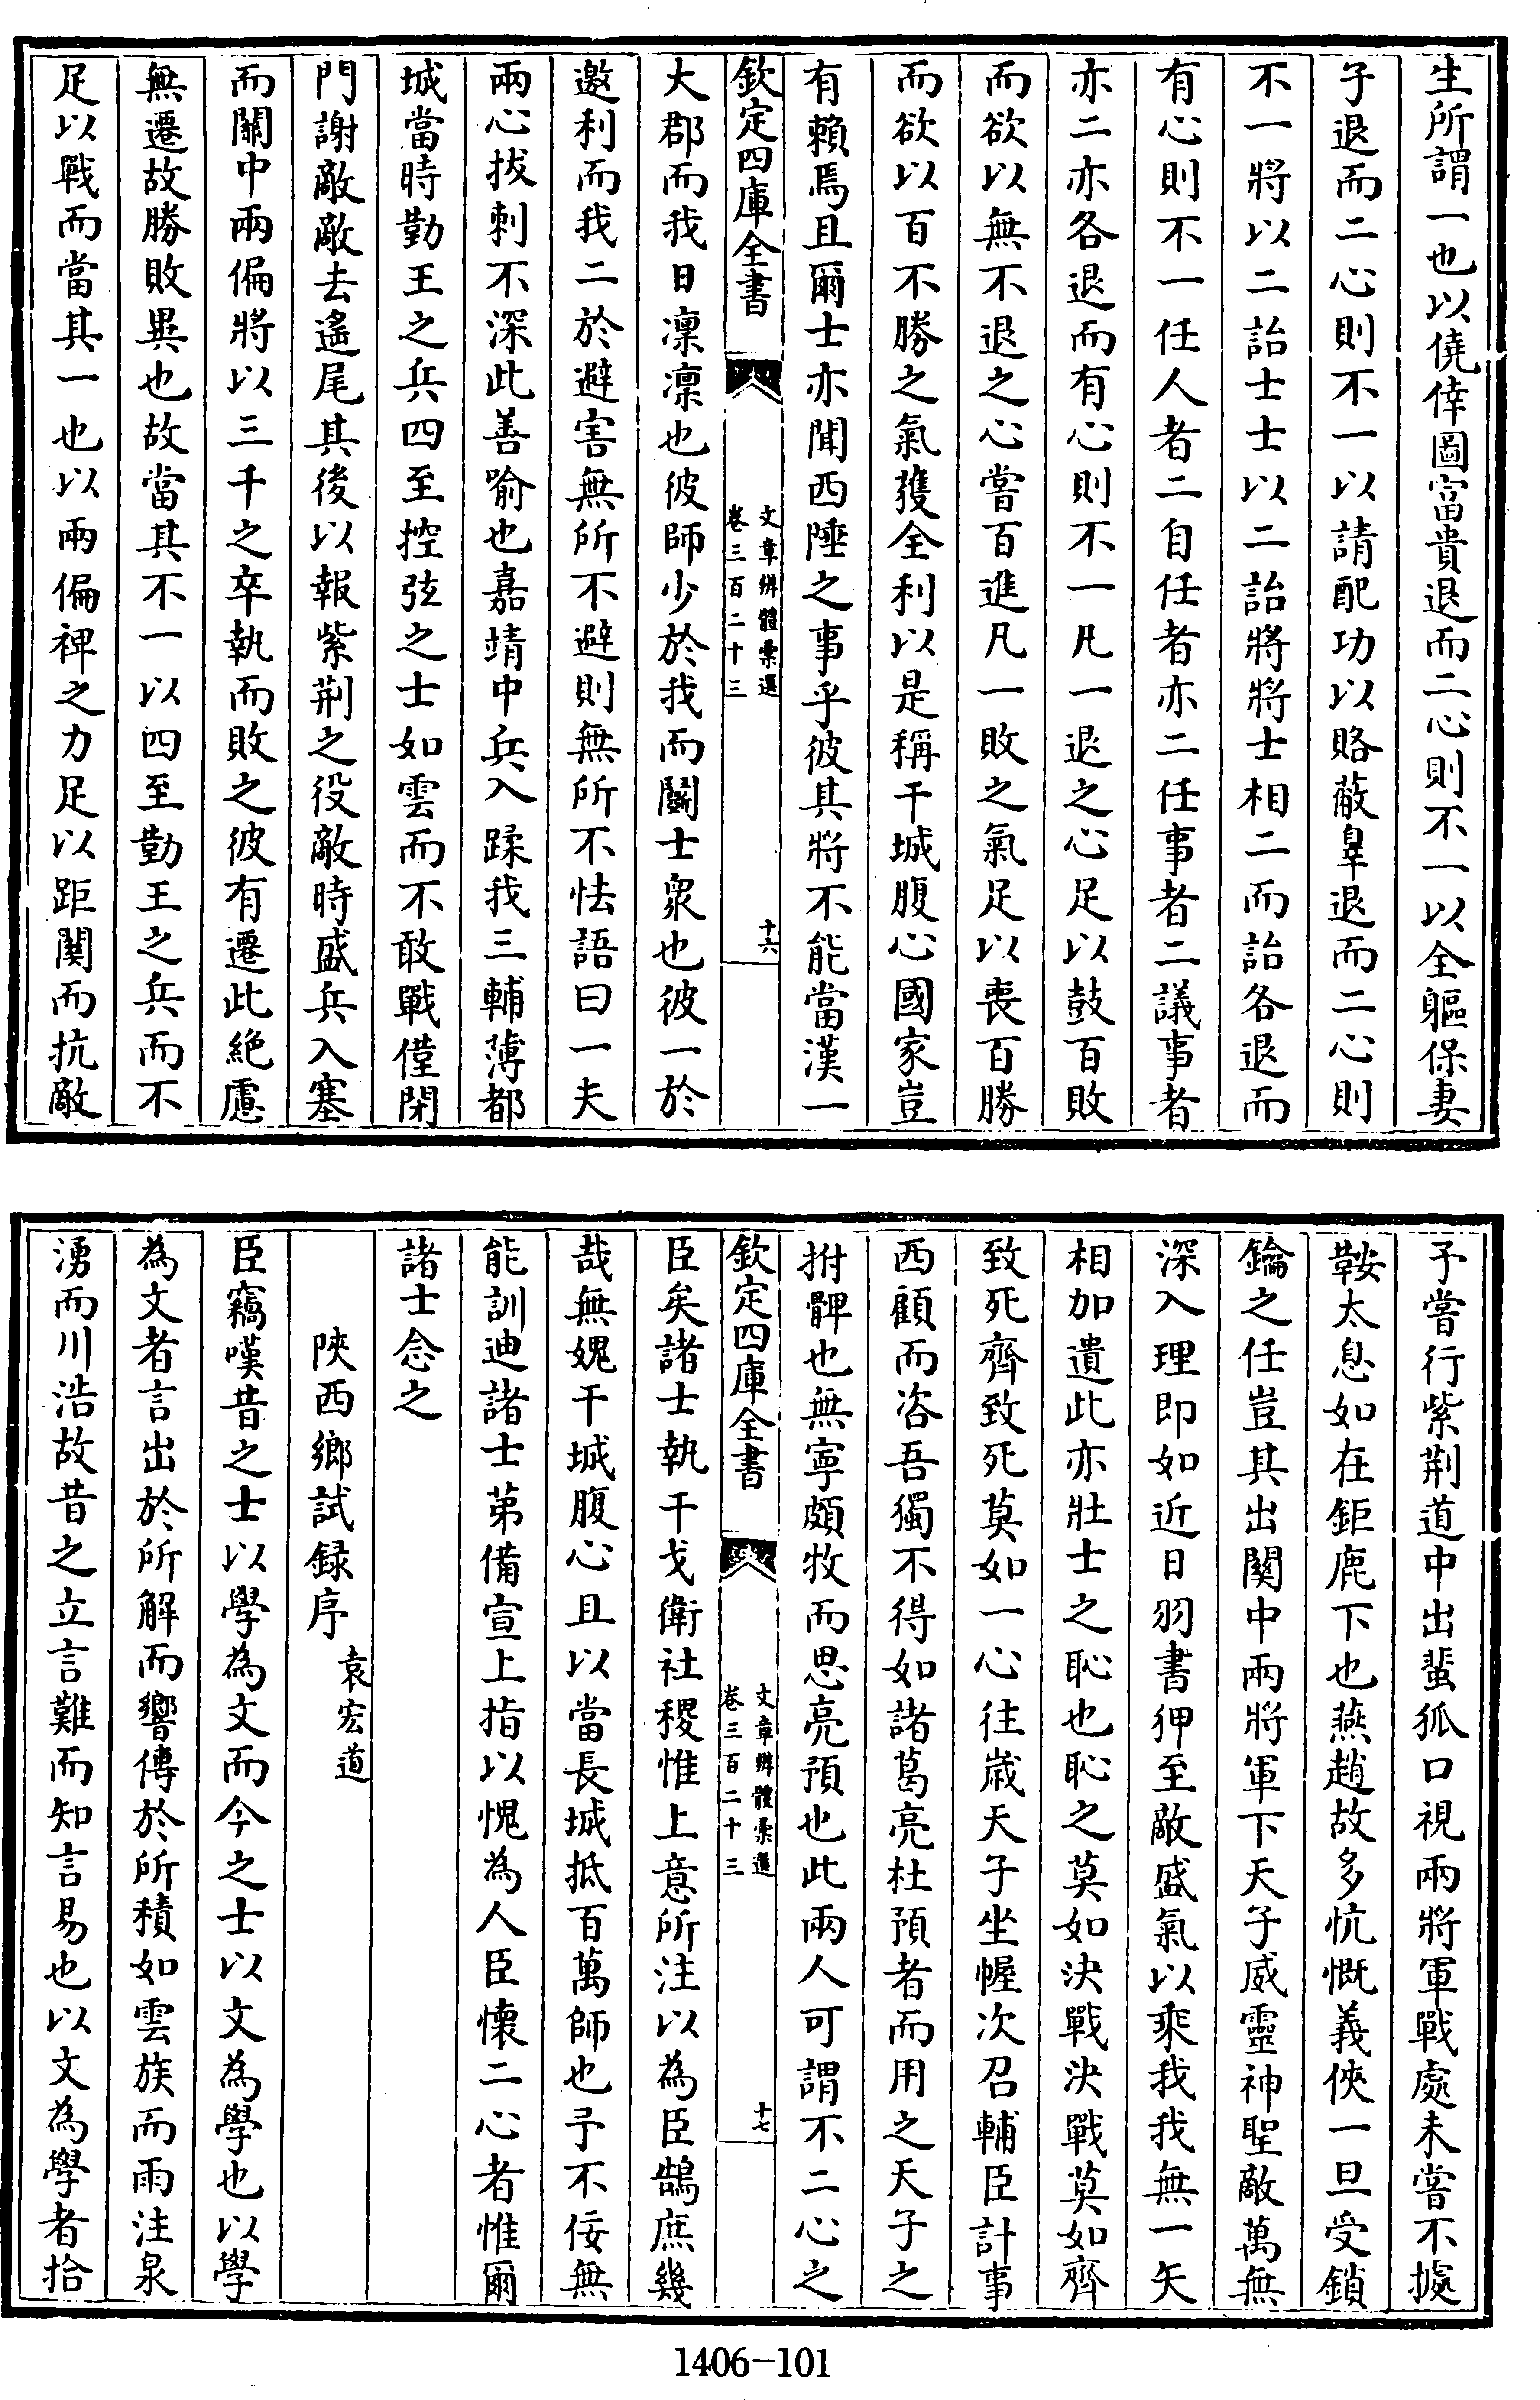 生所謂一也以僥倖圖富貴退而二心則不一以全軀保妻
子退而二心則不一以請配功以賂蔽辠退而二心則
不一將以二詒士士以二詒將將士相二而詒各退而
有心則不一任人者二自任者亦二任事者二議事者
亦二亦各退而有心則不一凡一退之心足以鼓百敗
而欲以無不退之心嘗百進凡一敗之氣足以喪百勝
而欲以百不勝之氣獲全利以是稱干城腹心國家豈
有賴焉且爾士亦聞西陲之事乎彼其將不能當漢一
欽定四庫全書
文章辨體彙選
卷三百二十三
十六
大郡而我日凜凜也彼師少於我而鬭士衆也彼一於
邀利而我二於避害無所不避則無所不怯語曰一夫
兩心拔刺不深此善喻也嘉靖中兵入蹂我三輔薄都
城當時勤王之兵四至控弦之士如雲而不敢戰僅閉
門謝敵敵去遙尾其後以報紫荆之役敵時盛兵入塞
而關中兩偏將以三千之卒執而敗之彼有遷此絶慮
無遷故勝敗異也故當其不一以四至勤王之兵而不
足以戰而當其一也以兩偏裨之力足以距關而抗敵
予嘗行紫荆道中出蜚狐口視兩將軍戰處未嘗不據
鞍太息如在鉅鹿下也燕趙故多忼慨義俠一旦受鎖
鑰之任豈其出關中兩將軍下天子威靈神聖敵萬無
深入理即如近日羽書狎至敵盛氣以乘我我無一矢
相加遺此亦壯士之恥也恥之莫如決戰決戰莫如齊
致死齊致死莫如一心往歲天子坐幄次召輔臣計事
西顧而咨吾獨不得如諸葛亮杜預者而用之天子之
拊髀也無寧頗牧而思亮預也此兩人可謂不二心之
欽定四庫全書
文章辨體彙選
卷三百二十三
十七
臣矣諸士執干戈衛社稷惟上意所注以為臣鵠庶幾
哉無媿干城腹心且以當長城抵百萬師也予不佞無
能訓迪諸士第備宣上指以愧為人臣懷二心者惟爾
諸士念之
陝西鄉試録序 袁宏道
臣竊嘆昔之士以學為文而今之士以文為學也以學
為文者言出於所解而響傳於所積如雲族而雨注泉
湧而川浩故昔之立言難而知言易也以文為學者拾
1406-101